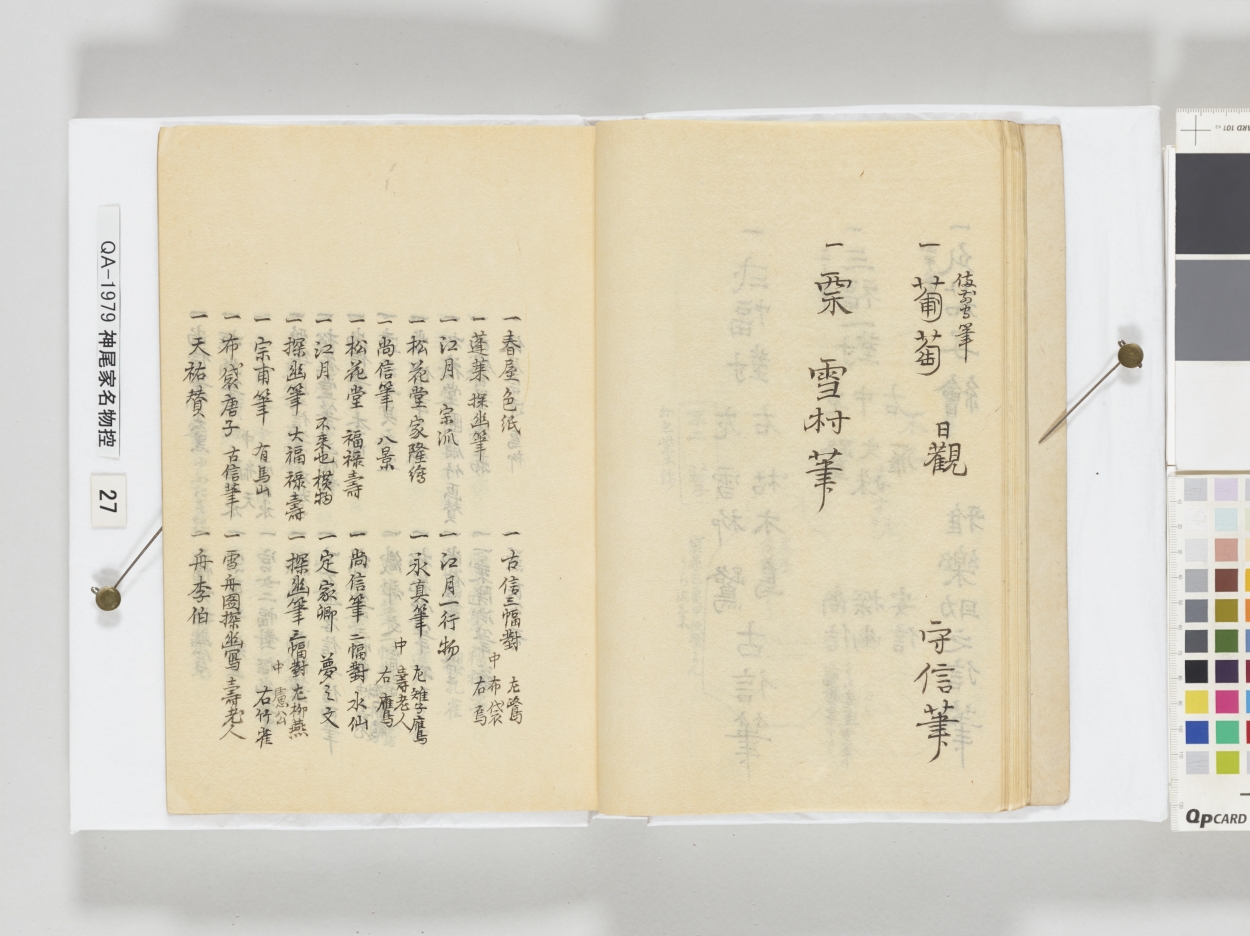 一 葡萄 日観 守信筆
一 栗 雪村筆
一 春屋色紙
一 蓬莱 探幽筆
一 江月 宗派
一 松花堂 家隆絵
一 尚信筆 八景
一 松花堂 福禄寿
一 江月 不来也横物
一 探幽筆 大福禄壽
一 宗甫筆 有馬山
一 布袋唐子 古信筆
一 天祐賛
一 古信三幅對 中布袋 左鷺 右烏
一 江月一行物
一 永真筆 中壽老人 左雉子鷹 右鷹
一 尚信筆 二幅對 水仙
一 定家卿 夢之文
一 探幽筆 三幅對 中 左柳燕 右竹雀
一 雪舟図探幽写壽老人
一 舟李伯
QA-1979 神尾家名物控
27
QPCARD